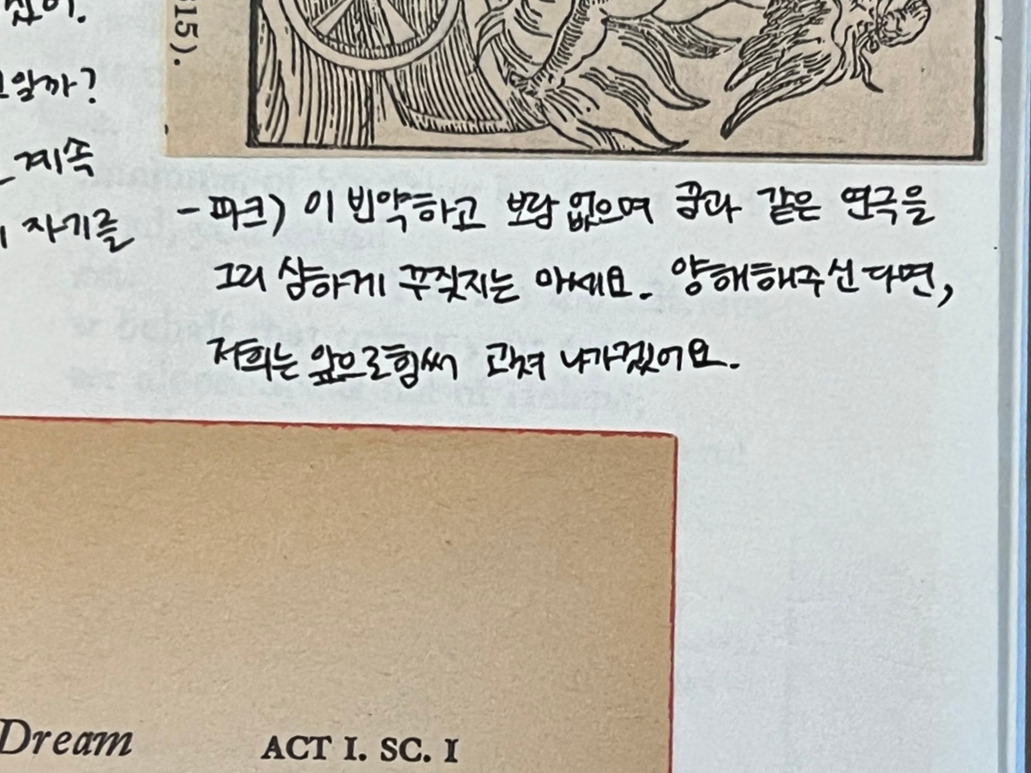 15).
알까?
계속
자기를
- 파크) 이 빈약하고 보람 없으며 꿈과 같은 연극을
그리 심하게 꾸짖지는 마세요. 양해해주신다면,
저희는 앞으로 힘써 고쳐 나가겠어요.
Dream ACT I. SC. I